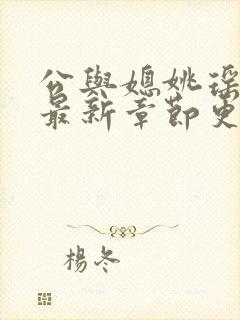 公與媳姚瑶
最新章節更
楊冬